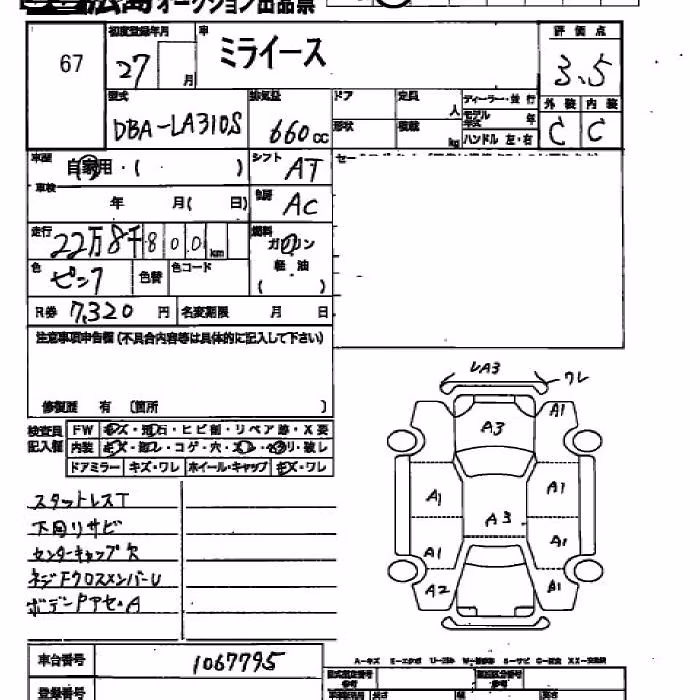 広島オークション出品票
67
初度登録年月
27 月
車
ミライース
評価点
3.5
型式
DBA-LA310S
排気量
660cc
ドア
定員 人
形状
積載 kg
ディーラー・並行
モデル年式 年
ハンドル 左・右
外装 内装
C C
車歴
自家用・( )
シフト
AT
車検
年 月( 日)
冷房
AC
走行
22万8千800km
燃料
ガソリン
軽油
( )
色
ピンク
色替
色コード
R券 7,320円
名変期限 月 日
注意事項申告欄(不具合内容等は具体的に記入して下さい)
修復歴 有 〔箇所 〕
検査員記入欄
FW キズ・飛石・ヒビ割・リペア跡・X要
内装
ドアミラー キズ・ワレ ホイール・キャップ キズ・ワレ
スタットレスT
下回りサビ
センターキャップ欠
ネジFクロスメンバーU
A3
ワレ
A1
A3
A1
A1
A3
A1
A1
A2
A1
車台番号
1067795
登録番号